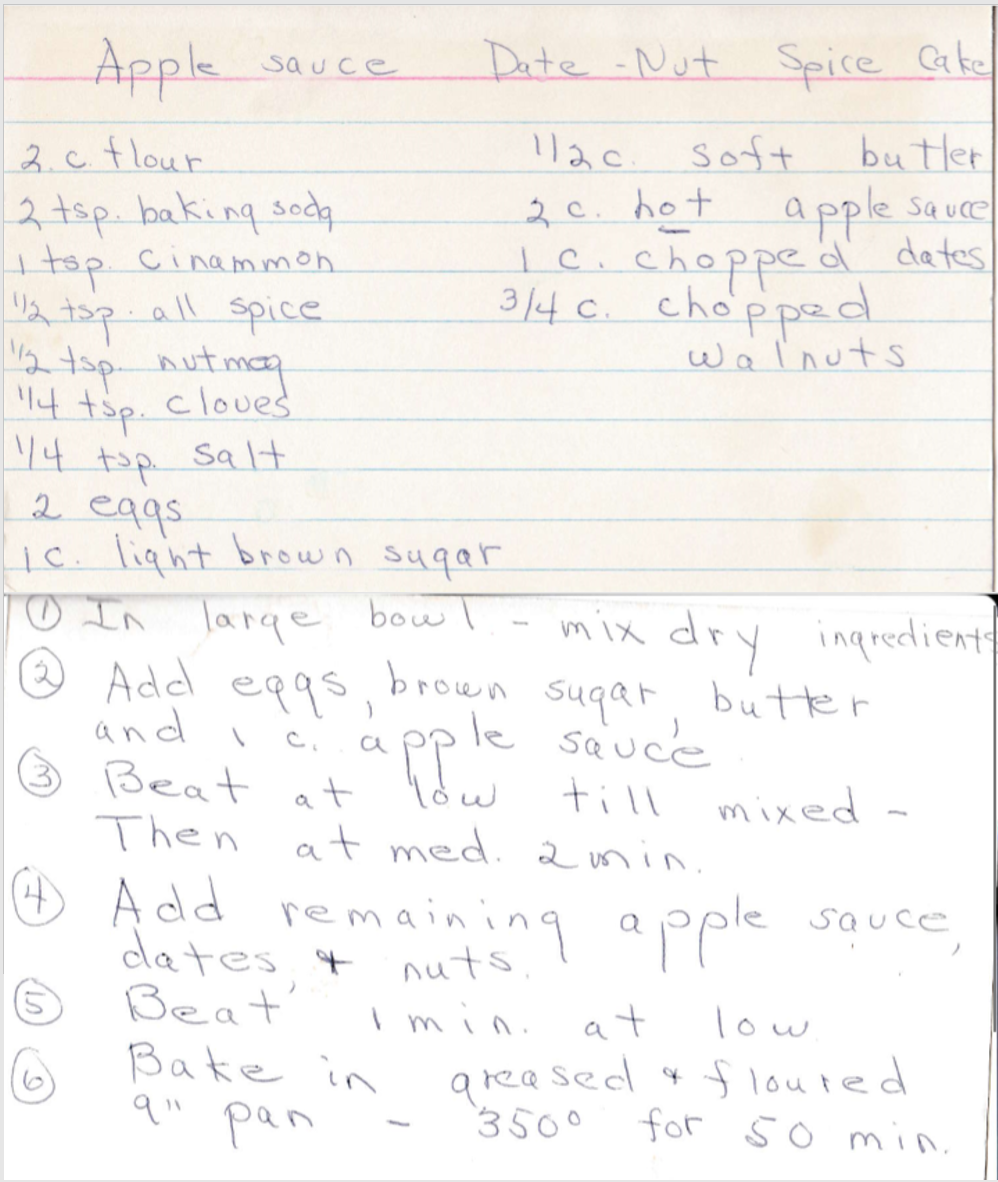 Apple sauce Date-Nut Spice Cake
2. c. flour
2 tsp. baking soda
1 tsp. Cinammon
1/2 tsp. all spice
1/2 tsp. nutmeg
1/4 tsp. cloves
1/4 tsp. salt
2 eggs
1 c. light brown sugar
1/2 c. soft butter
2 c. hot apple sauce
1 c. chopped dates
3/4 c. chopped
walnuts
① In large bowl - mix dry ingredients
② Add eggs, brown sugar, butter
and 1 c. apple sauce
③ Beat at low till mixed -
Then at med. 2 min.
④ Add remaining apple sauce,
dates, & nuts.
⑤ Beat 1 min. at low
⑥ Bake in greased & floured
9" pan - 350° for 50 min.